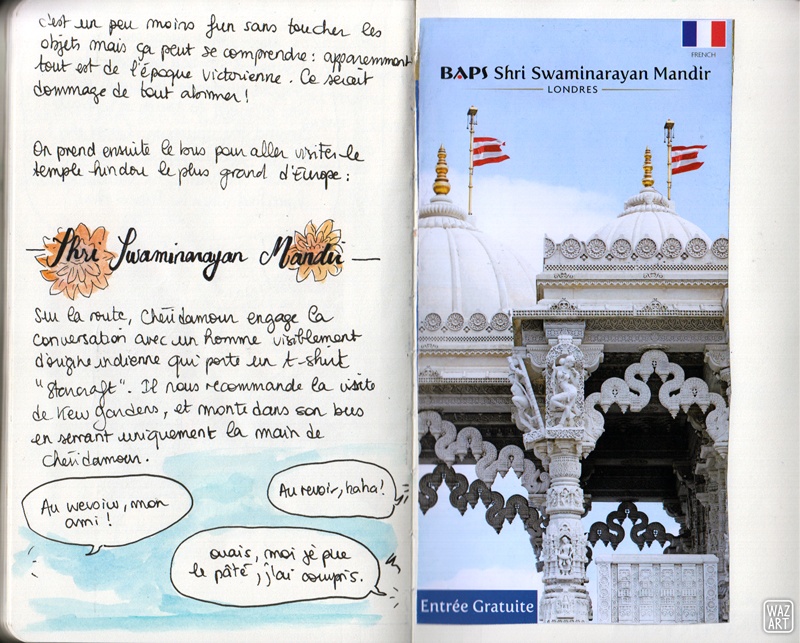 c'est un peu moins fun sans toucher les
objets mais ça peut se comprendre : apparemment
tout est de l'époque victorienne. Ce serait
dommage de tout abîmer !
On prend ensuite le bus pour aller visiter le
temple hindou le plus grand d'Europe :
Shri Swaminarayan Mandir
Sur la route, Chéridamour engage la
conversation avec un homme visiblement
d'origine indienne qui porte un t-shirt
"Starcraft". Il nous recommande la visite
de Kew Gardens, et monte dans son bus
en serrant uniquement la main de
Chéridamour.
Au wevoiw, mon
ami !
Au revoir, haha !
ouais, moi je pue
le pâté, j'ai compris.
FRENCH
BAPS Shri Swaminarayan Mandir
LONDRES
Entrée Gratuite
WAZ
ART